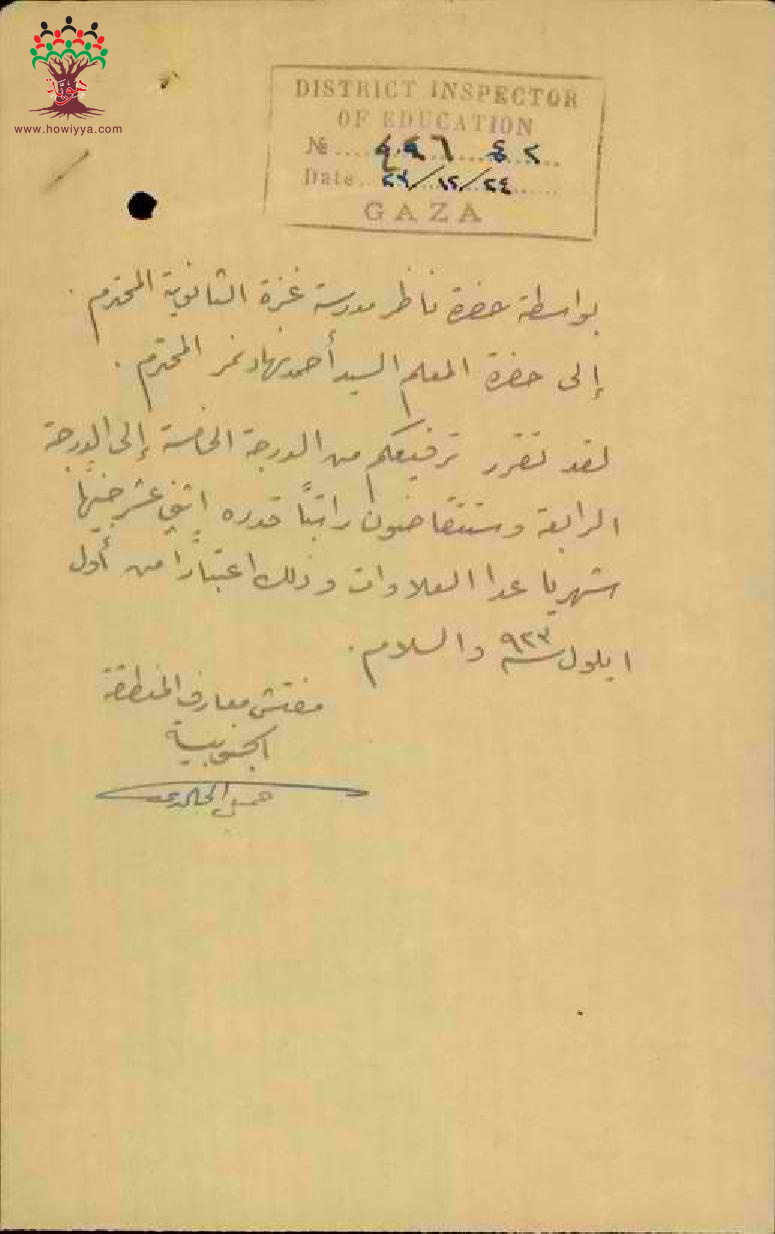 هوية
www.howiyya.com
DISTRICT INSPECTOR
OF EDUCATION
№ ٩٩٦ ٤٢
Date ٢٧/١٢/٢٤
GAZA
بواسطة حضرة ناظر مدرسة غزة الثانوية المحترم .
إلى حضرة المعلم السيد أحمد نهاد نمر المحترم .
لقد تقرر ترفيعكم من الدرجة الخامسة إلى الدرجة
الرابعة وستتقاضون راتبًا قدره اثني عشر جنيهًا
شهريا عدا العلاوات وذلك اعتبارًا من أول
ايلول سنة ٩٢٣ والسلام .
مفتش معارف المنطقة
الجنوبية